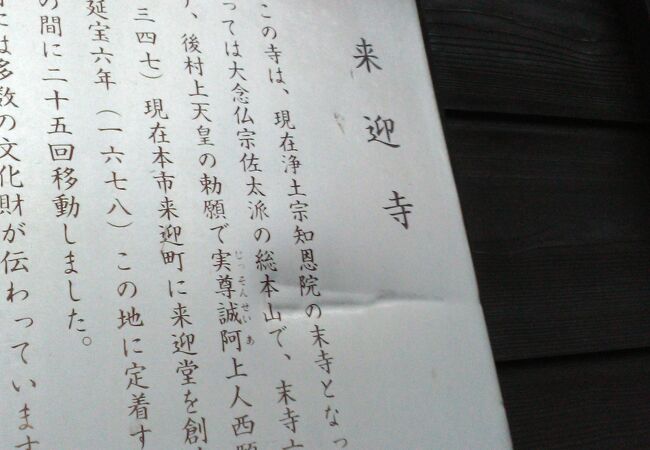 来迎寺
この寺は、現在浄土宗知恩院の末寺となっ
ては大念仏宗佐太派の総本山で、末寺
、後村上天皇の勅願で実尊誠阿上人西
じっそんせいあ
三四七)現在本市来迎町に来迎堂を創
延宝六年(一六七八)この地に定着す
の間に二十五回移動しました。
には多数の文化財が伝わっています